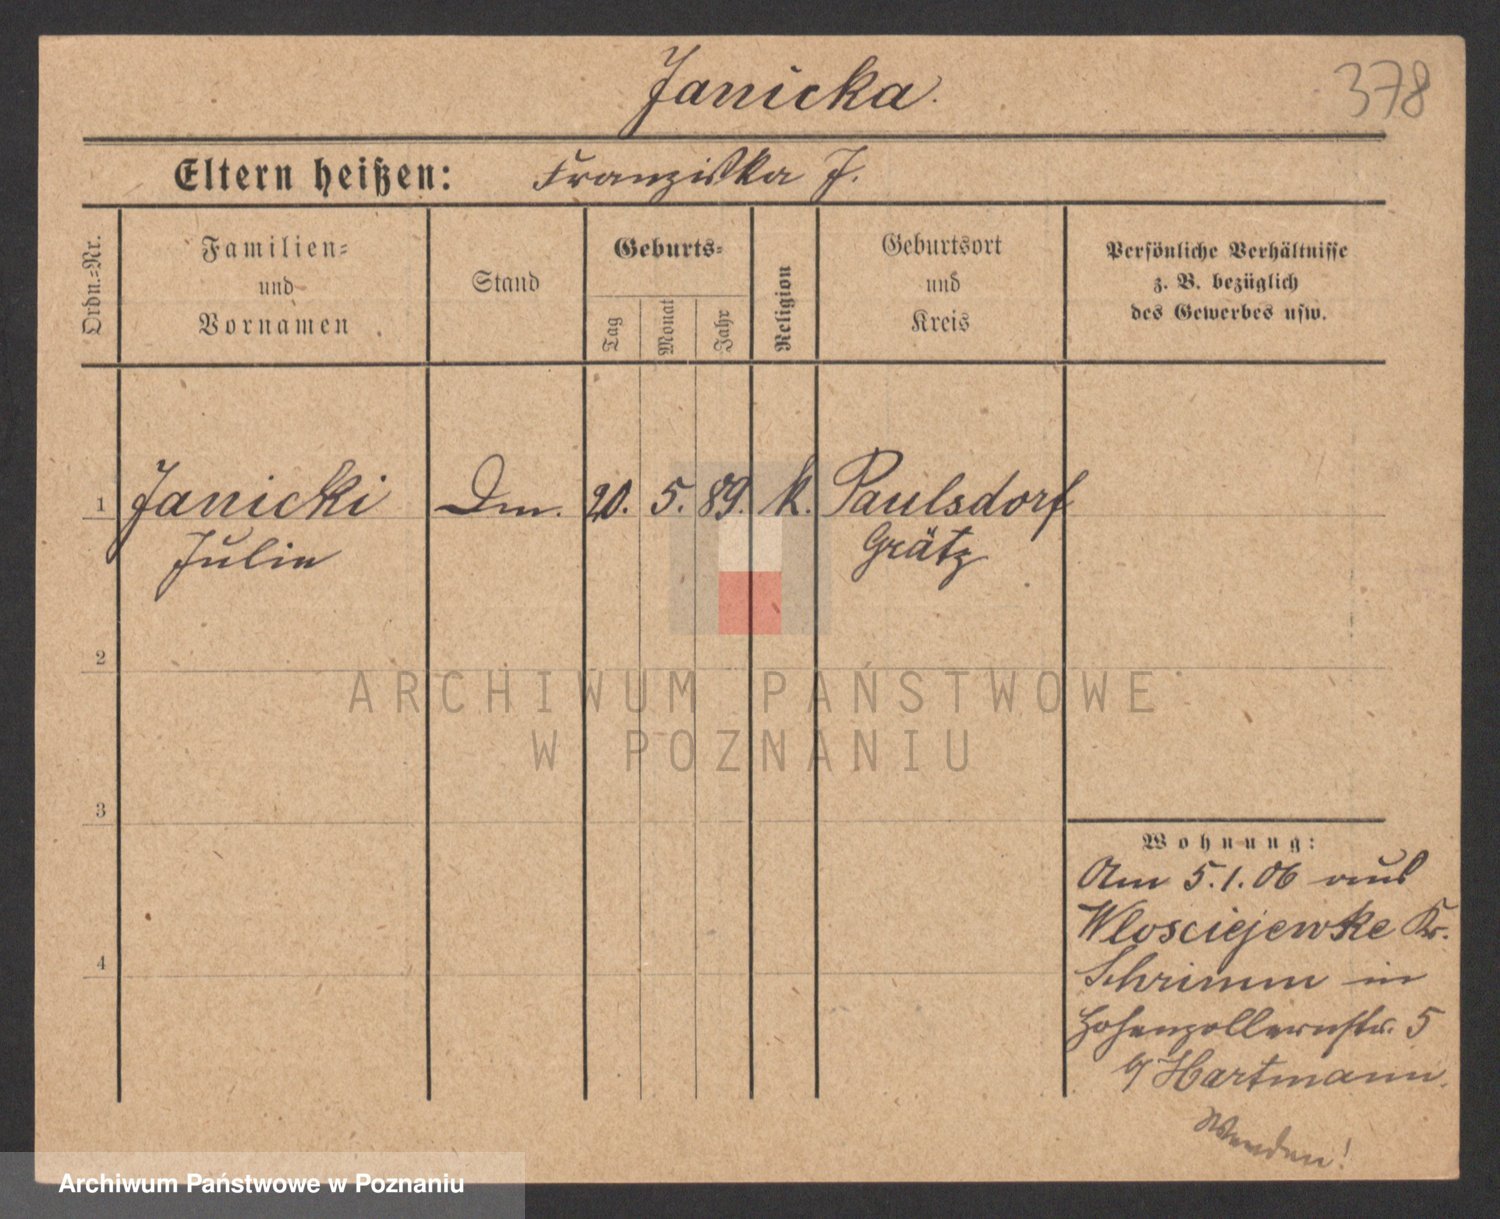 Janicka.
378
Eltern heißen: Franziska J.
Ordn.=Nr.
Familien=
und
Vornamen
Stand
Geburts=
Tag
Monat
Jahr
Religion
Geburtsort
und
Kreis
Persönliche Verhältnisse
z. B. bezüglich
des Gewerbes usw.
1 Janicki Dm. 20. 5. 89. k. Paulsdorf
Julie Grätz
2
3
4
Wohnung:
Am 5.1.06 aus
Wlosciejewke Kr.
Schrimm in
Hohenzollernstr. 5
b/ Hartmann.
Wenden!
ARCHIWUM PAŃSTWOWE
W POZNANIU
Archiwum Państwowe w Poznaniu